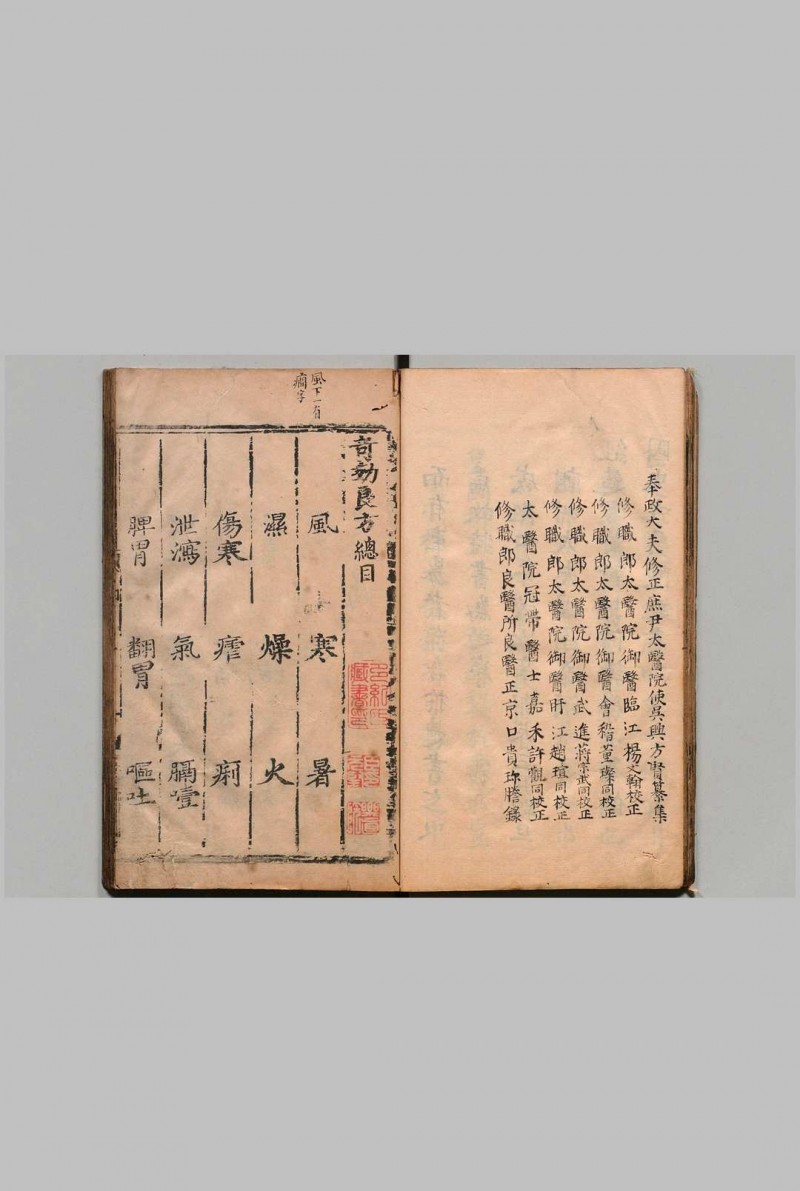 奉政大夫修正庶尹太醫院使吳興方賢纂集
修職郎太醫院御醫臨江楊文翰校正
修職郎太醫院御醫會稽董璨同校正
修職郎太醫院御醫武進蔣宗武同校正
修職郎太醫院御醫盱江趙瑄同校正
太醫院冠帶醫士嘉禾許觀同校正
修職郎良醫所良醫正京口貴珎謄錄
風下一有
癎字
奇効良方總目
風 寒 暑
濕 燥 火
傷寒 瘧 痢
泄瀉 氣 膈噎
脾胃 翻胃 嘔吐